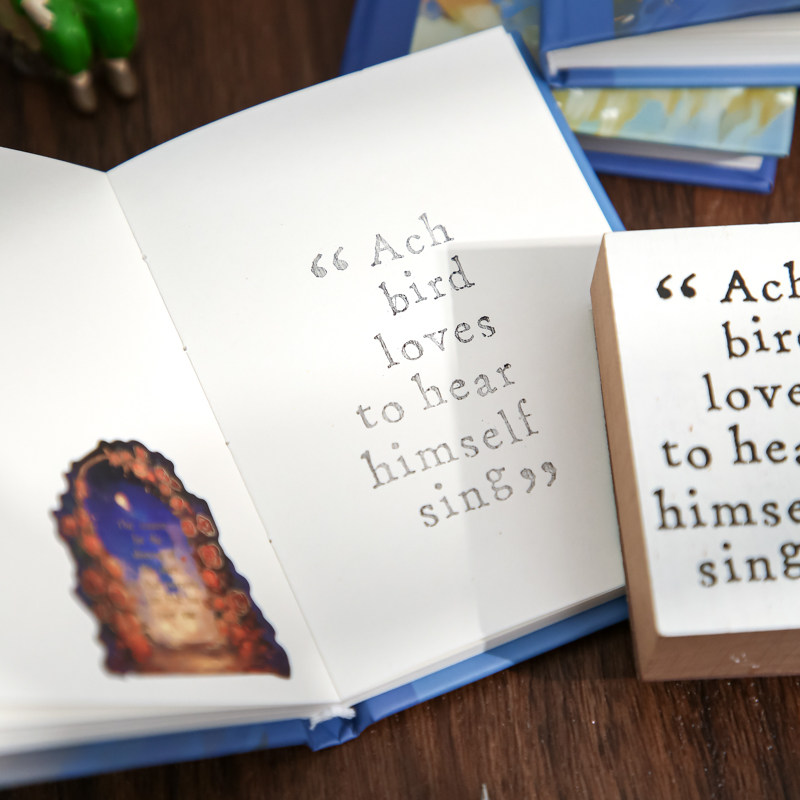 “ Ach
bird
loves
to hear
himself
sing”
“ Ach
bird
love
to hea
himse
sing